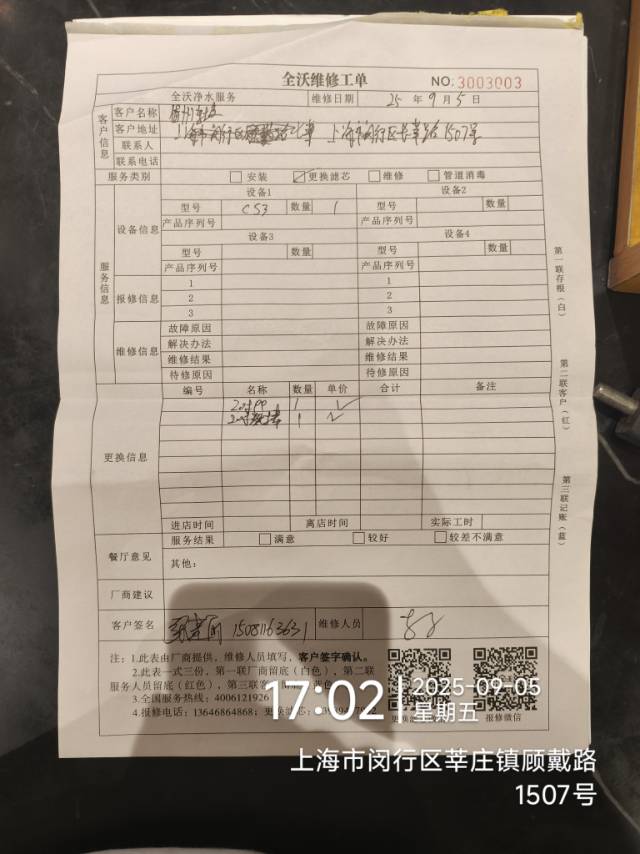 全沃维修工单
NO:3003003
全沃净水服务 维修日期 25 年 9 月 5 日
客户信息
客户名称
客户地址 上海市闵行区 1507号
联系人
联系电话
服务类别 安装 更换滤芯 维修 管道消毒
服务信息
设备信息
设备1 设备2
型号 C53 数量 1 型号 数量
产品序列号 产品序列号
设备3 设备4
型号 数量 型号 数量
产品序列号 产品序列号
报修信息
1 1
2 2
3 3
维修信息
故障原因 故障原因
解决办法 解决办法
维修结果 维修结果
待修原因 待修原因
更换信息
编号 名称 数量 单价 合计 备注
20寸PP 1
20寸 1
进店时间 离店时间 实际工时
餐厅意见
服务结果 满意 较好 较差不满意
其他:
厂商建议
客户签名 15081163631 维修人员
注:1.此表由厂商提供,维修人员填写,客户签字确认。
2.此表一式三份,第一联厂商留底(白色),第二联
服务人员留底(红色),第三联客
3.全国服务热线:4006121926
4.报修电话:13646864868;更换滤芯:
报修微信
第一联存根(白)
第二联客户(红)
第三联记账(蓝)
17:02
2025-09-05
星期五
上海市闵行区莘庄镇顾戴路
1507号